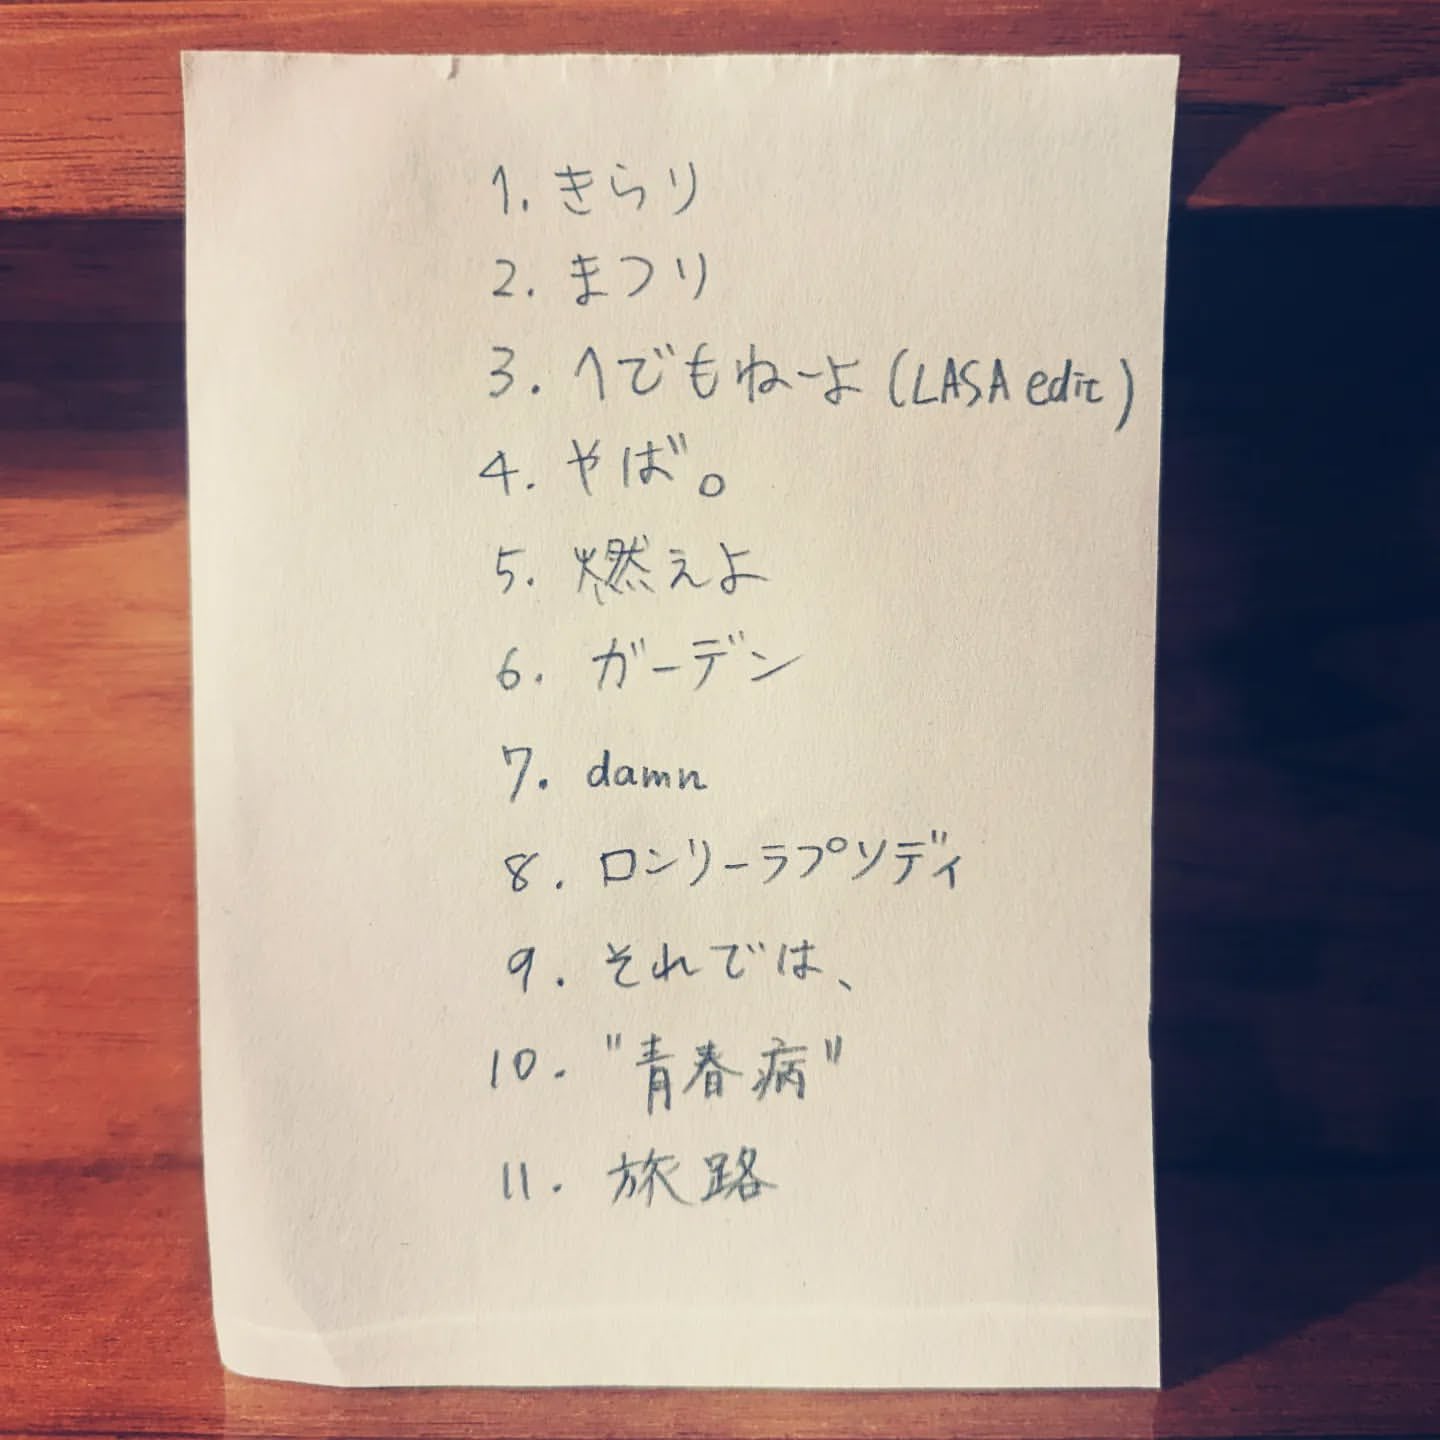 1. きらり
2. まつり
3. へでもねーよ (LASA edit)
4. やば。
5. 燃えよ
6. ガーデン
7. damn
8. ロンリーラプソディ
9. それでは、
10. "青春病"
11. 旅路